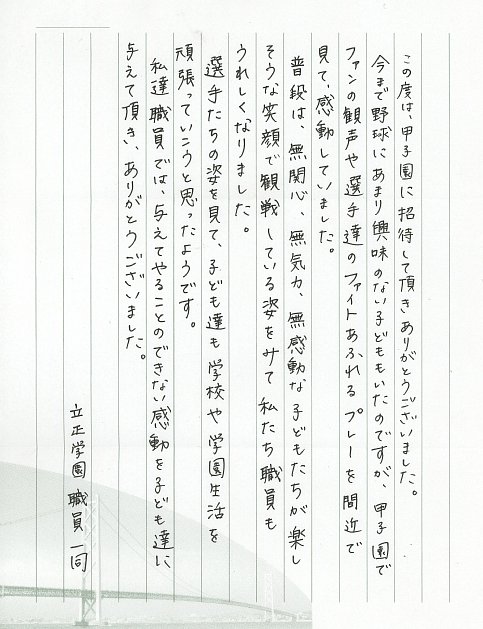 この度は、甲子園に招待して頂きありがとうございました。
今まで野球にあまり興味のない子どももいたのですが、甲子園で
ファンの観声や選手達のファイトあふれるプレーを間近で
見て、感動していました。
普段は、無関心、無気力、無感動な子どもたちが楽し
そうな笑顔で観戦している姿をみて私たち職員も
うれしくなりました。
選手たちの姿を見て、子ども達も学校や学園生活を
頑張っていこうと思ったようです。
私達職員では、与えてやることのできない感動を子ども達に
与えて頂き、ありがとうございました。
立正学園 職員一同